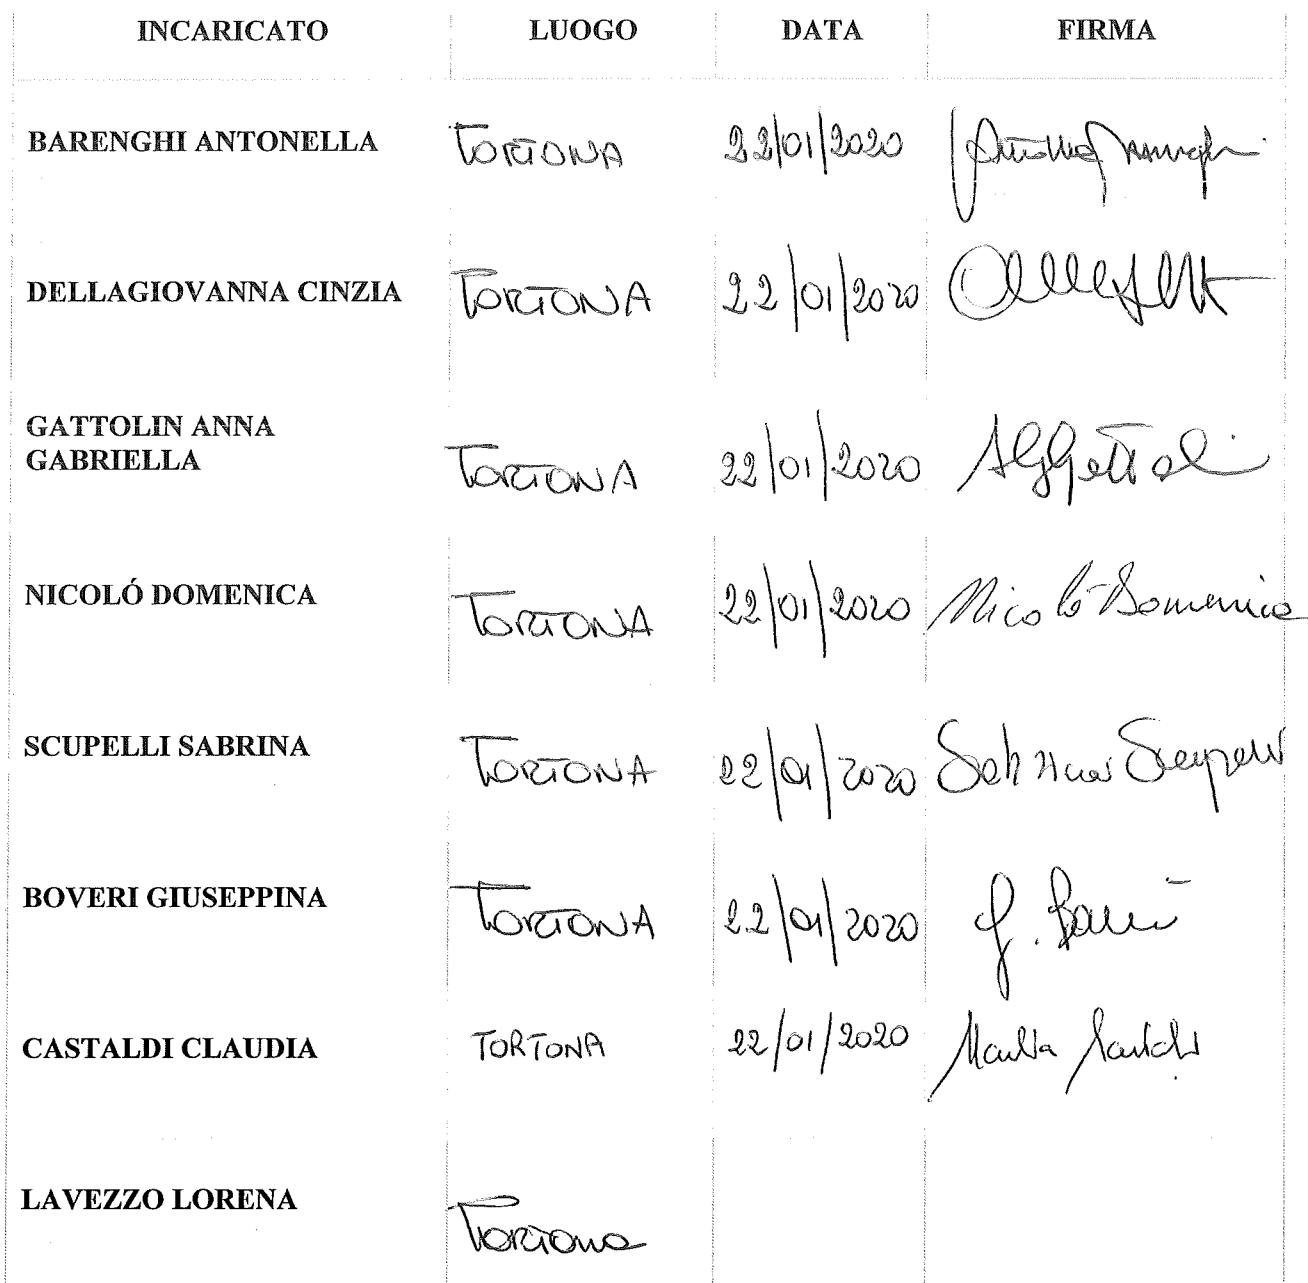 INCARICATO LUOGO DATA FIRMA
BARENGHI ANTONELLA TORTONA 22/01/2020
DELLAGIOVANNA CINZIA TORTONA 22/01/2020
GATTOLIN ANNA
GABRIELLA TORTONA 22/01/2020
NICOLÓ DOMENICA TORTONA 22/01/2020 Nicolò Domenica
SCUPELLI SABRINA TORTONA 22/01/2020
BOVERI GIUSEPPINA TORTONA 22/01/2020
CASTALDI CLAUDIA TORTONA 22/01/2020
LAVEZZO LORENA Tortona